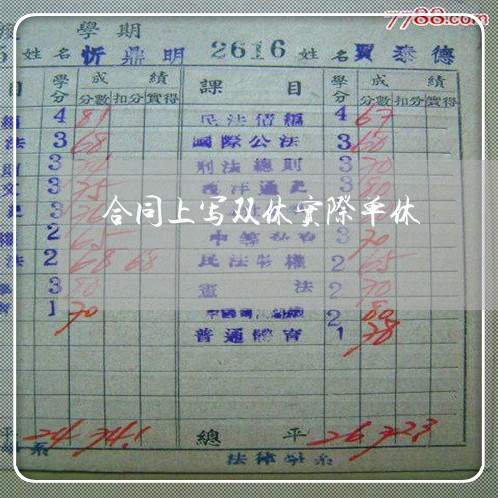 7788.com
學期
姓名 忻鼎明 2616 姓名 賈泰德
目 學分 成績 課目 學分 成績
分數 扣分 實得 分數 扣分 實得
4 81 民法債編 4 67
法 3 68 國際公法 3 60
3 刑法總則 3 70
3 75 西洋通史 3 80
合同上写双休实际单休
2 65 3 70
法 2 68 68 民法物權 2 65
3 80 憲法 2 70
1 70 2 80
普通體育 1 78
平 24 74.1 總平 26 72.3
系 法律學系